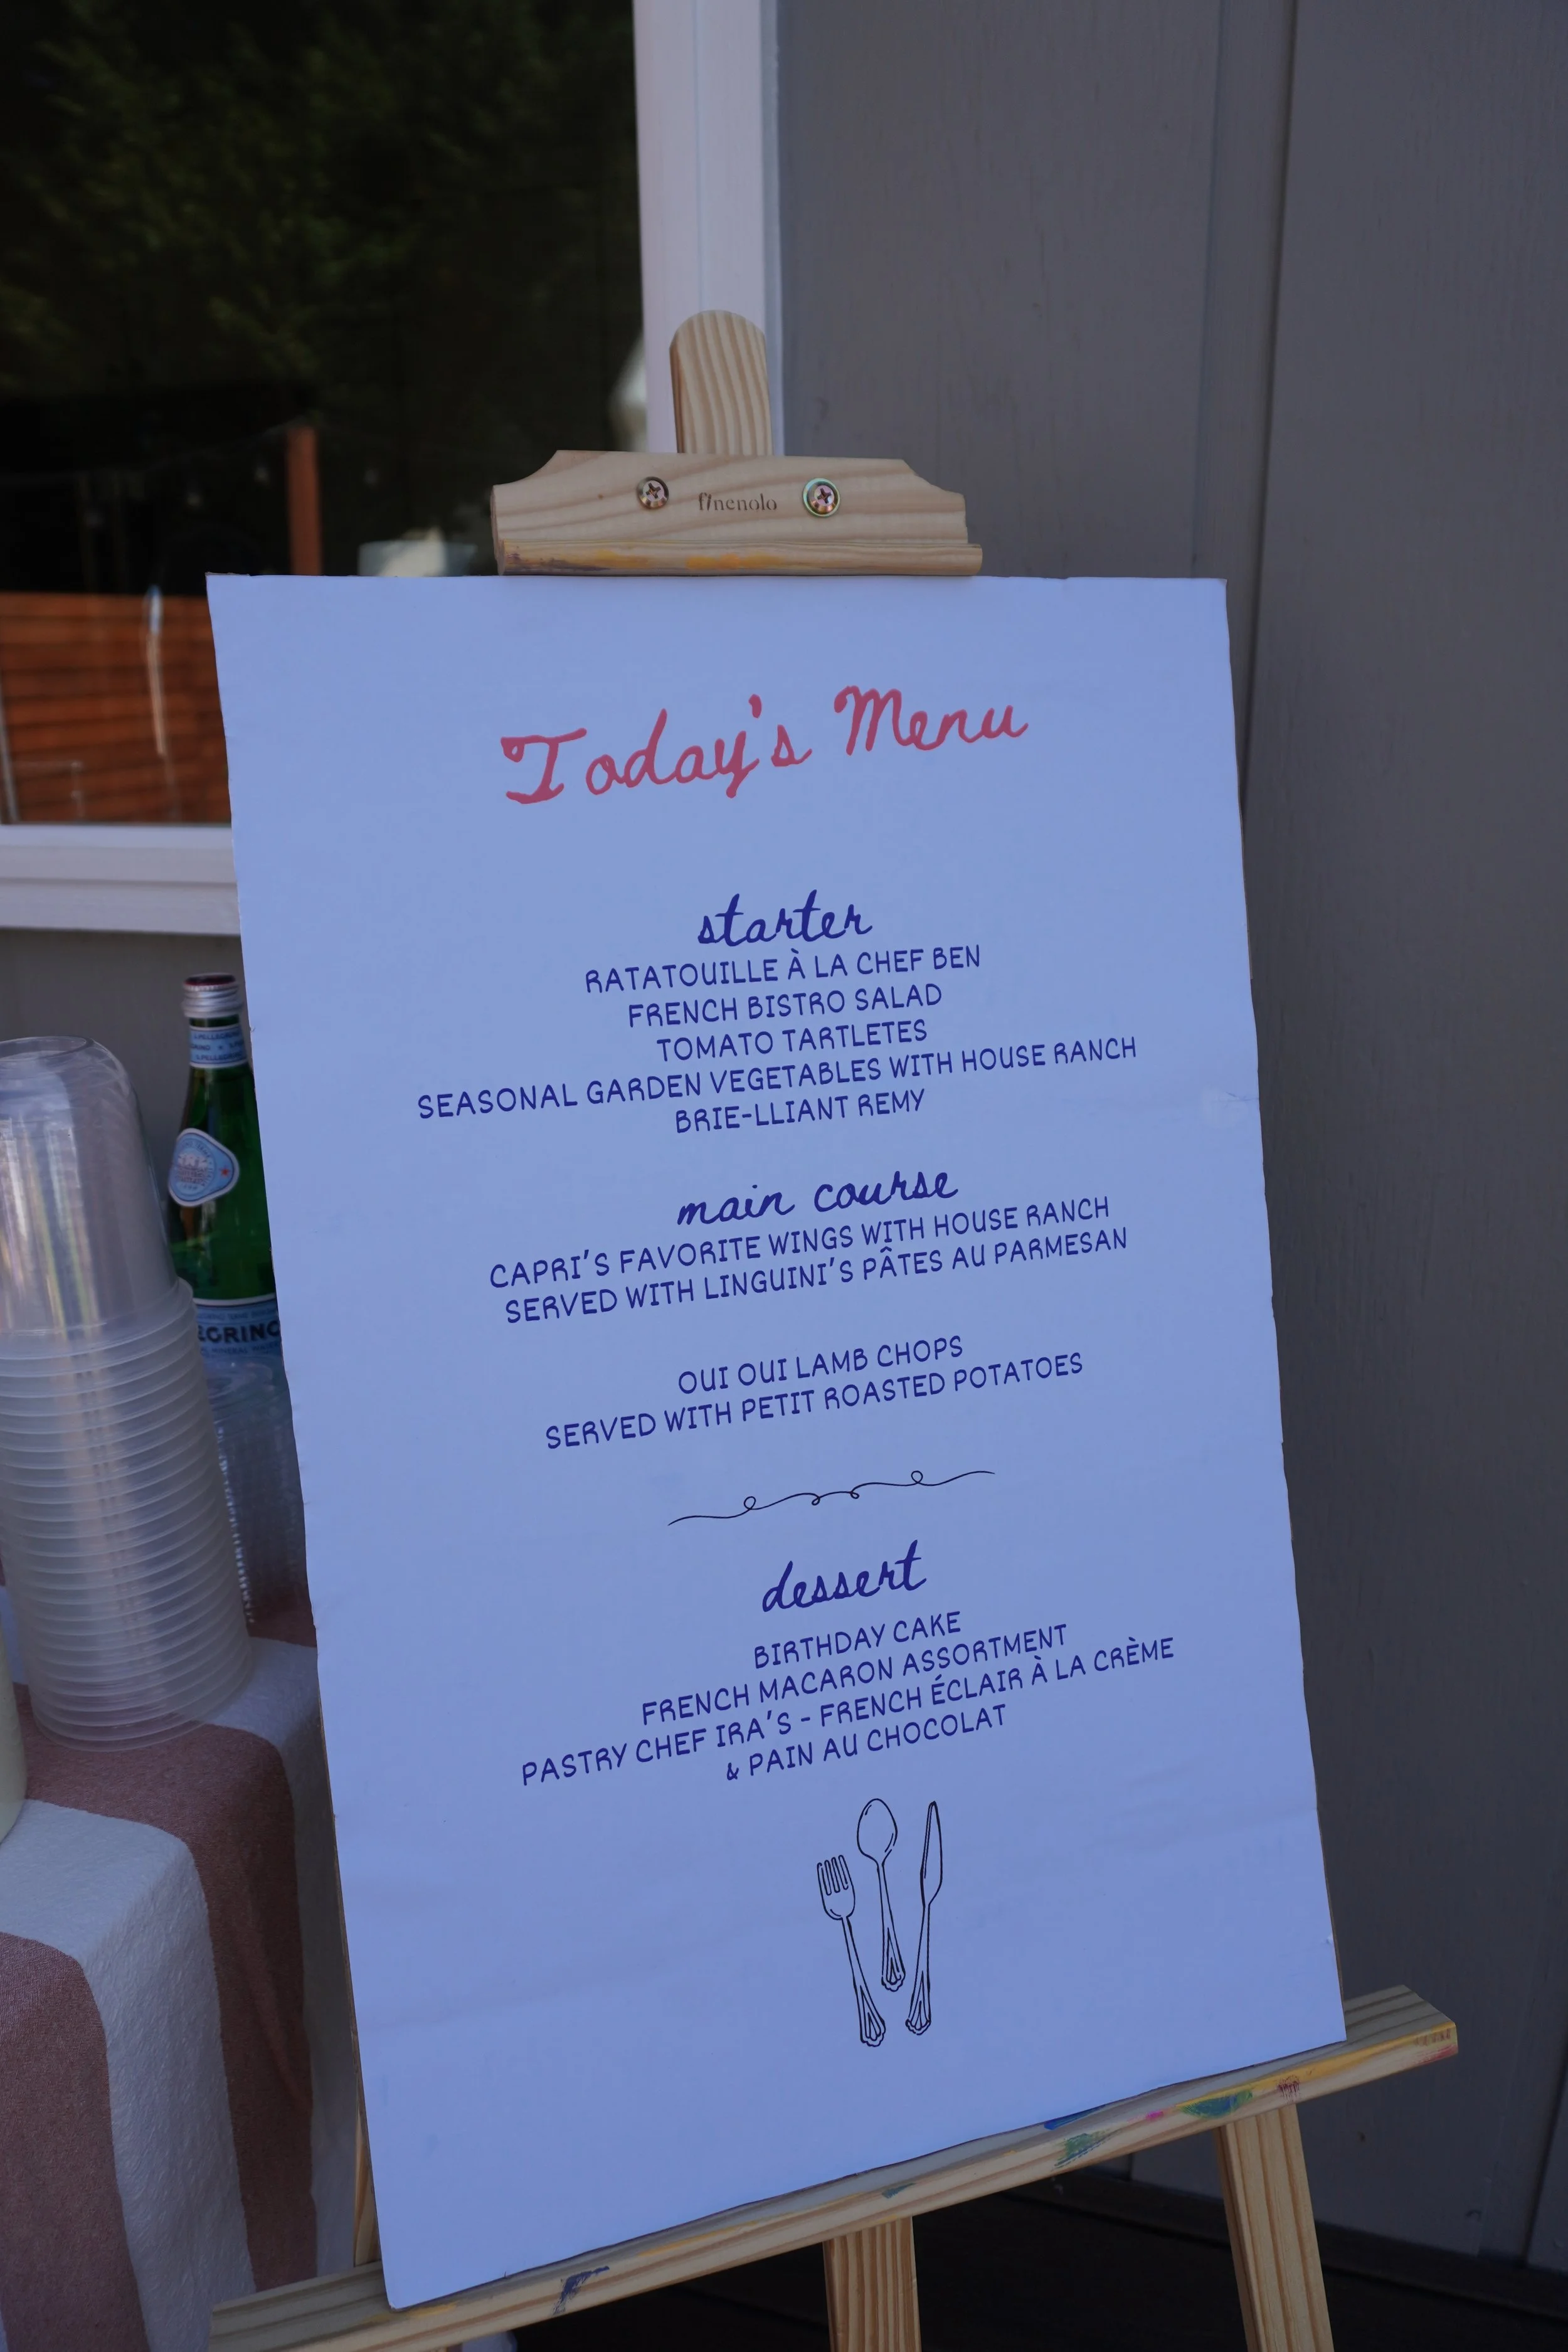 finenolo
Today's Menu
starter
RATATOUILLE À LA CHEF BEN
FRENCH BISTRO SALAD
TOMATO TARTLETES
SEASONAL GARDEN VEGETABLES WITH HOUSE RANCH
BRIE-LLIANT REMY
main course
CAPRI'S FAVORITE WINGS WITH HOUSE RANCH
SERVED WITH LINGUINI'S PÂTES AU PARMESAN
OUI OUI LAMB CHOPS
SERVED WITH PETIT ROASTED POTATOES
dessert
BIRTHDAY CAKE
FRENCH MACARON ASSORTMENT
PASTRY CHEF IRA'S - FRENCH ÉCLAIR À LA CRÈME
& PAIN AU CHOCOLAT
S.PELLEGRINO
EGRINO